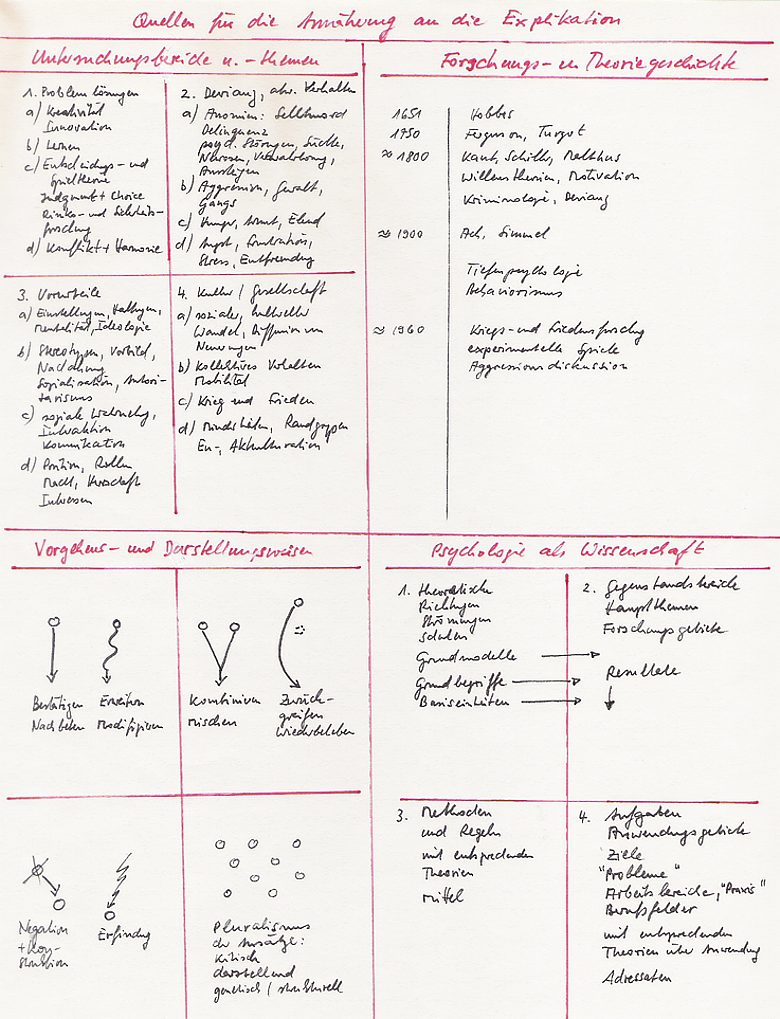 Quellen für die Annäherung an die Explikation
Untersuchungsbereiche u. -themen
1. Problemlösungen
a) Kreativität
Innovation
b) Lernen
c) Entscheidungs- und
Spieltheorie
Judgment + Choice
Risiko- und Sicherheits-
forschung
d) Konflikt + Harmonie
2. Devianz, abw. Verhalten
a) Anomien: Selbstmord
Delinquenz
psych. Störungen, Süchte,
Neurosen, Verwahrlosung,
Aussteigen
b) Aggression, Gewalt,
Gangs
c) Hunger, Armut, Elend
d) Angst, Frustration,
Stress, Entfremdung
3. Vorurteile
a) Einstellungen, Haltungen,
Mentalität, Ideologie
b) Stereotypen, Vorbild,
Nachahmung
Sozialisation, Autori-
tarismus
c) soziale Wahrnehmg,
Interaktion
Kommunikation
d) Position, Rollen
Macht, Herrschaft
Interessen
4. Kultur / Gesellschaft
a) sozialer, kultureller
Wandel, Diffusion von
Neuerungen
b) Kollektives Verhalten
Mobilität
c) Krieg und Frieden
d) Minderheiten, Randgruppen
En-, Akkulturation
Forschungs- und Theoriegeschichte
1651 Hobbes
1750 Ferguson, Turgot
≈ 1800 Kant, Schiller, Malthus
Willenstheorien, Motivation
Kriminologie, Devianz
≈ 1900 Ach, Simmel
Tiefenpsychologie
Behaviorismus
≈ 1960 Kriegs- und Friedensforschg
experimentelle Spiele
Aggressionsdiskussion
Vorgehens- und Darstellungsweisen
Bestätigen
Nachbeten
Erweitern
Modifizieren
Kombinieren
Mischen
Zurück-
greifen
Wiederbeleben
Negation
+ Kon-
struktion
Erfindung
Pluralismus
der Ansätze:
kritisch
darstellend
genetisch / strukturell
Psychologie als Wissenschaft
1. theoretische
Richtungen
Strömungen
Schulen
Grundmodelle
Grundbegriffe
Basiseinheiten
2. Gegenstandsbereiche
Hauptthemen
Forschungsgebiete
Resultate
3. Methoden
und Regeln
mit entsprechenden
Theorien
Mittel
4. Aufgaben
Anwendungsgebiete
Ziele
"Probleme"
Arbeitsbereiche, "Praxis"
Berufsfelder
mit entsprechenden
Theorien über Anwendung
Adressaten